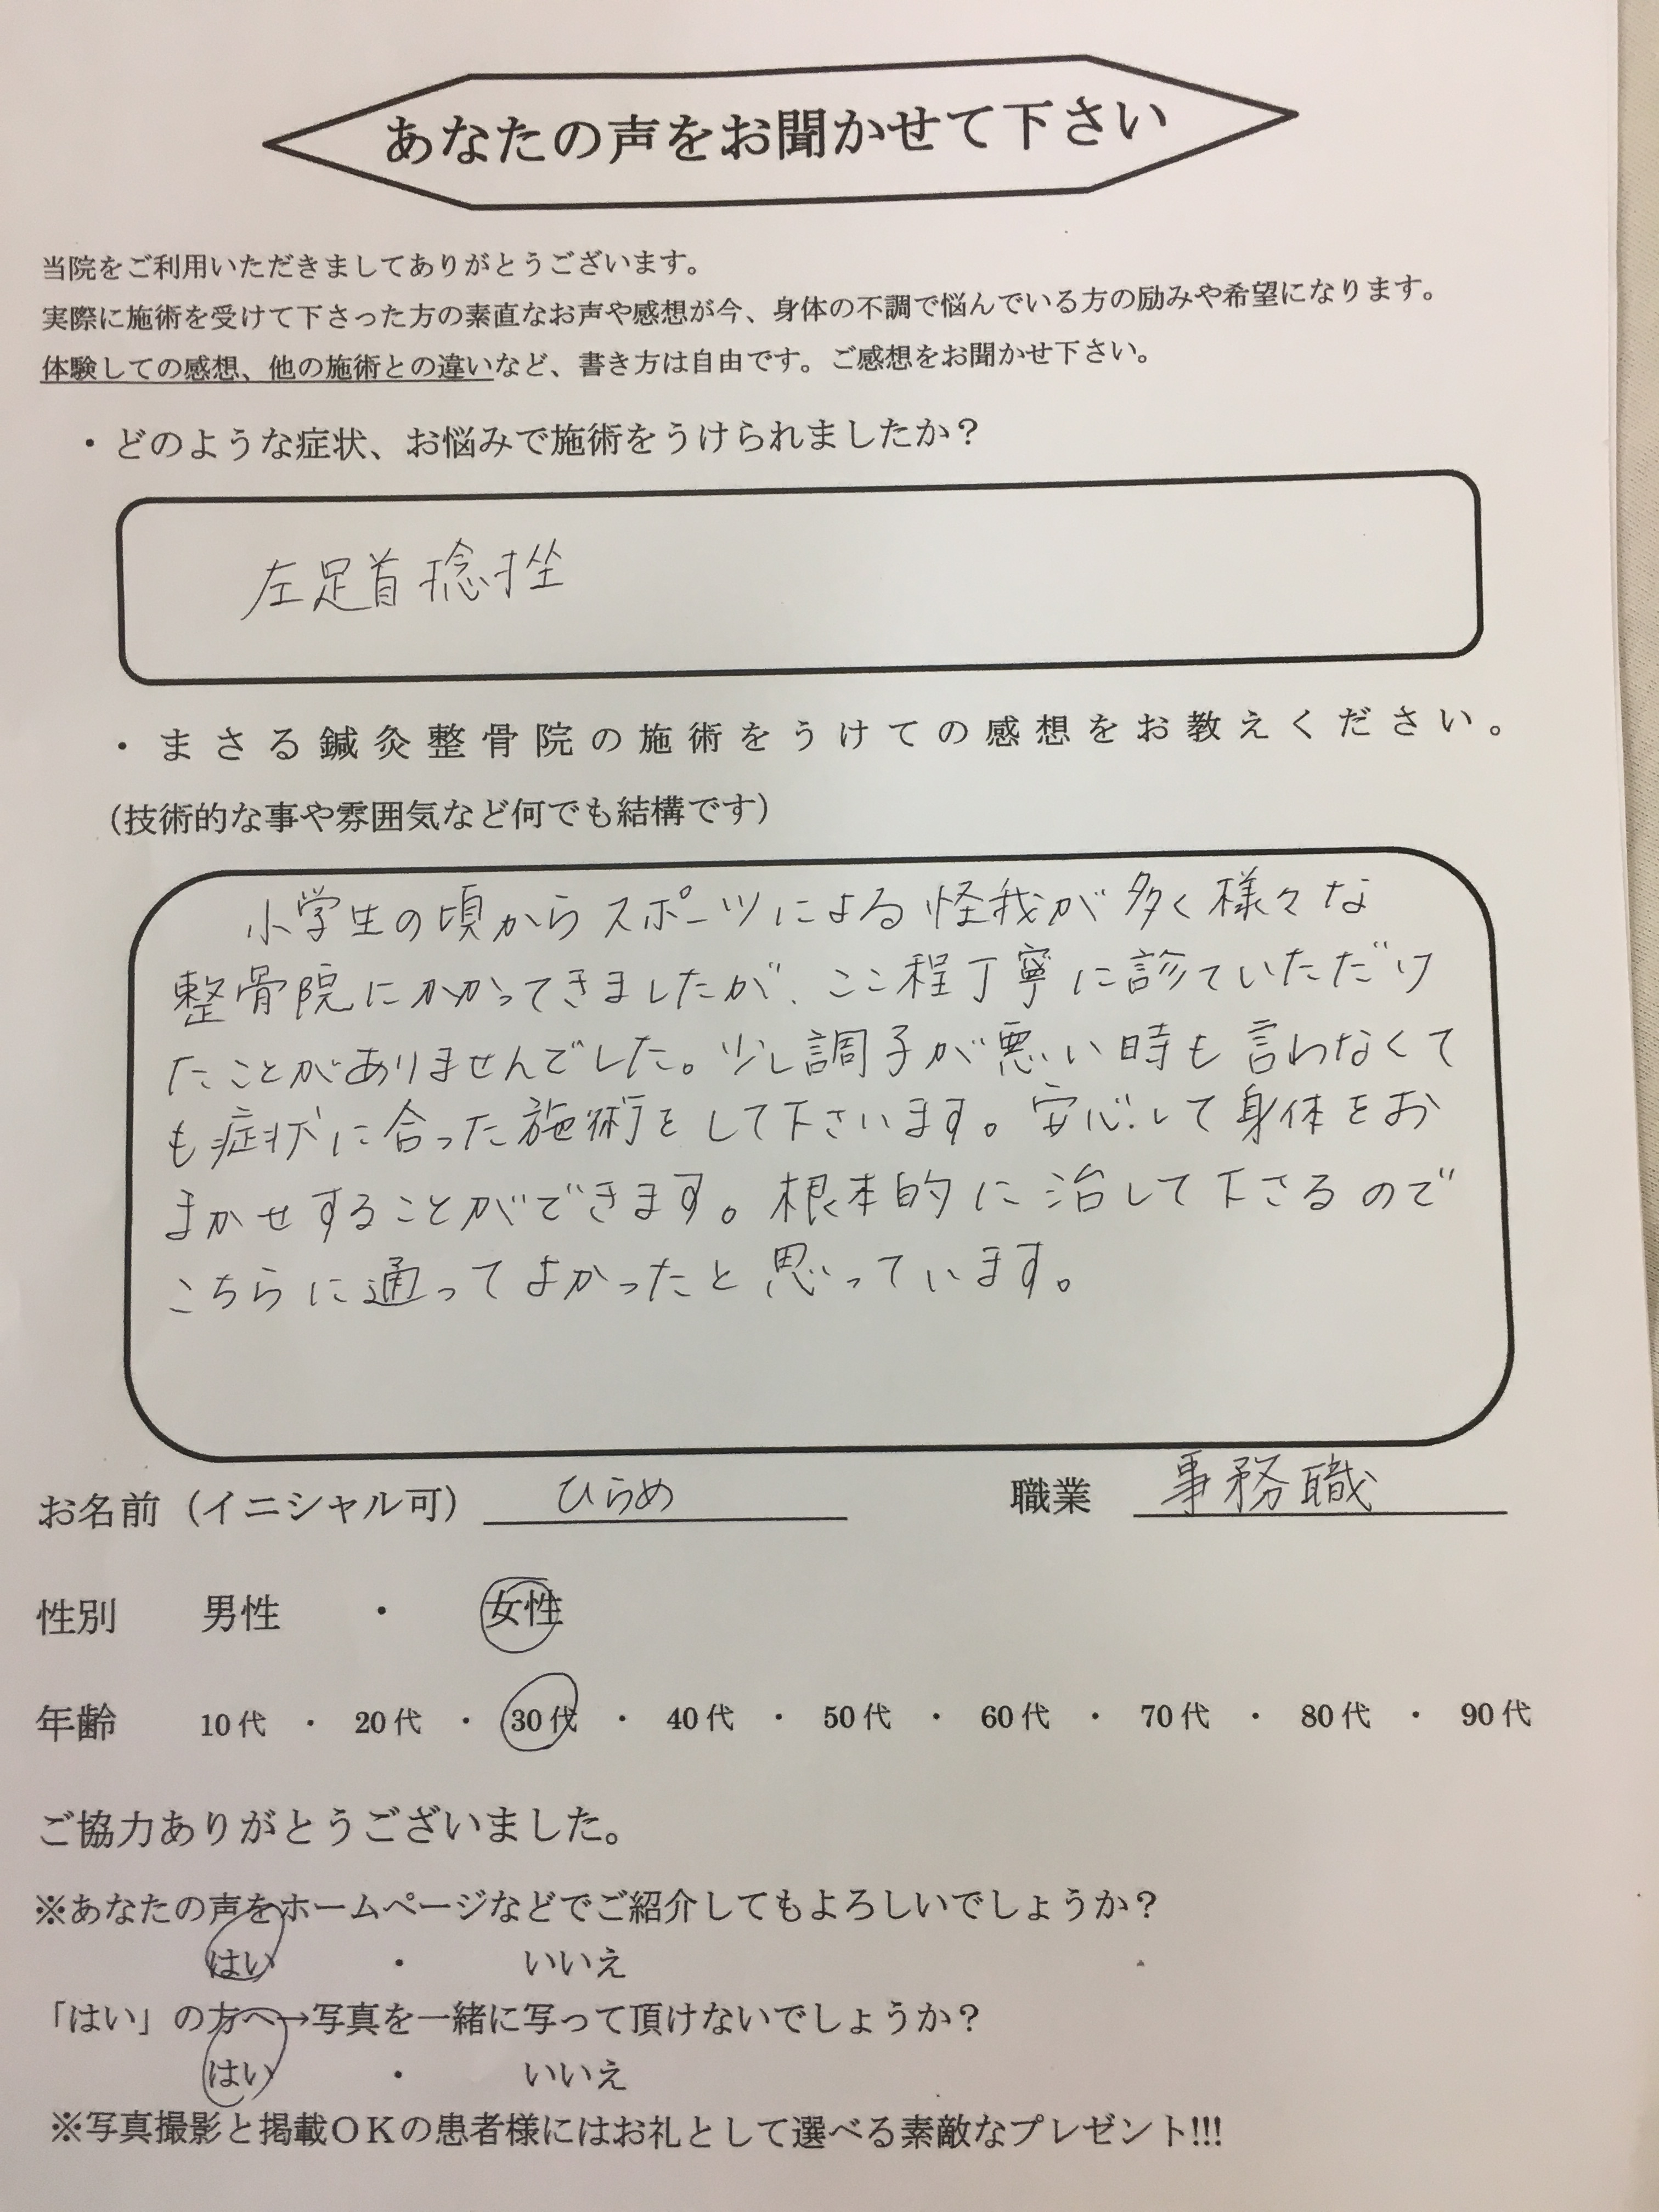 あなたの声をお聞かせて下さい
当院をご利用いただきましてありがとうございます。
実際に施術を受けて下さった方の素直なお声や感想が今、身体の不調で悩んでいる方の励みや希望になります。
体験しての感想、他の施術との違いなど、書き方は自由です。ご感想をお聞かせ下さい。
・どのような症状、お悩みで施術をうけられましたか？
左足首捻挫
・まさる鍼灸整骨院の施術をうけての感想をお教えください。
（技術的な事や雰囲気など何でも結構です）
小学生の頃からスポーツによる怪我が多く様々な
整骨院にかかってきましたが、ここ程丁寧に診ていただけ
たことがありませんでした。少し調子が悪い時も言わなくて
も症状に合った施術をして下さいます。安心して身体をお
まかせすることができます。根本的に治して下さるので
こちらに通ってよかったと思っています。
お名前（イニシャル可） ひらめ 職業 事務職
性別 男性 ・ 女性
年齢 10代 ・ 20代 ・ 30代 ・ 40代 ・ 50代 ・ 60代 ・ 70代 ・ 80代 ・ 90代
ご協力ありがとうございました。
※あなたの声をホームページなどでご紹介してもよろしいでしょうか？
はい ・ いいえ
「はい」の方へ→写真を一緒に写って頂けないでしょうか？
はい ・ いいえ
※写真撮影と掲載ＯＫの患者様にはお礼として選べる素敵なプレゼント!!!